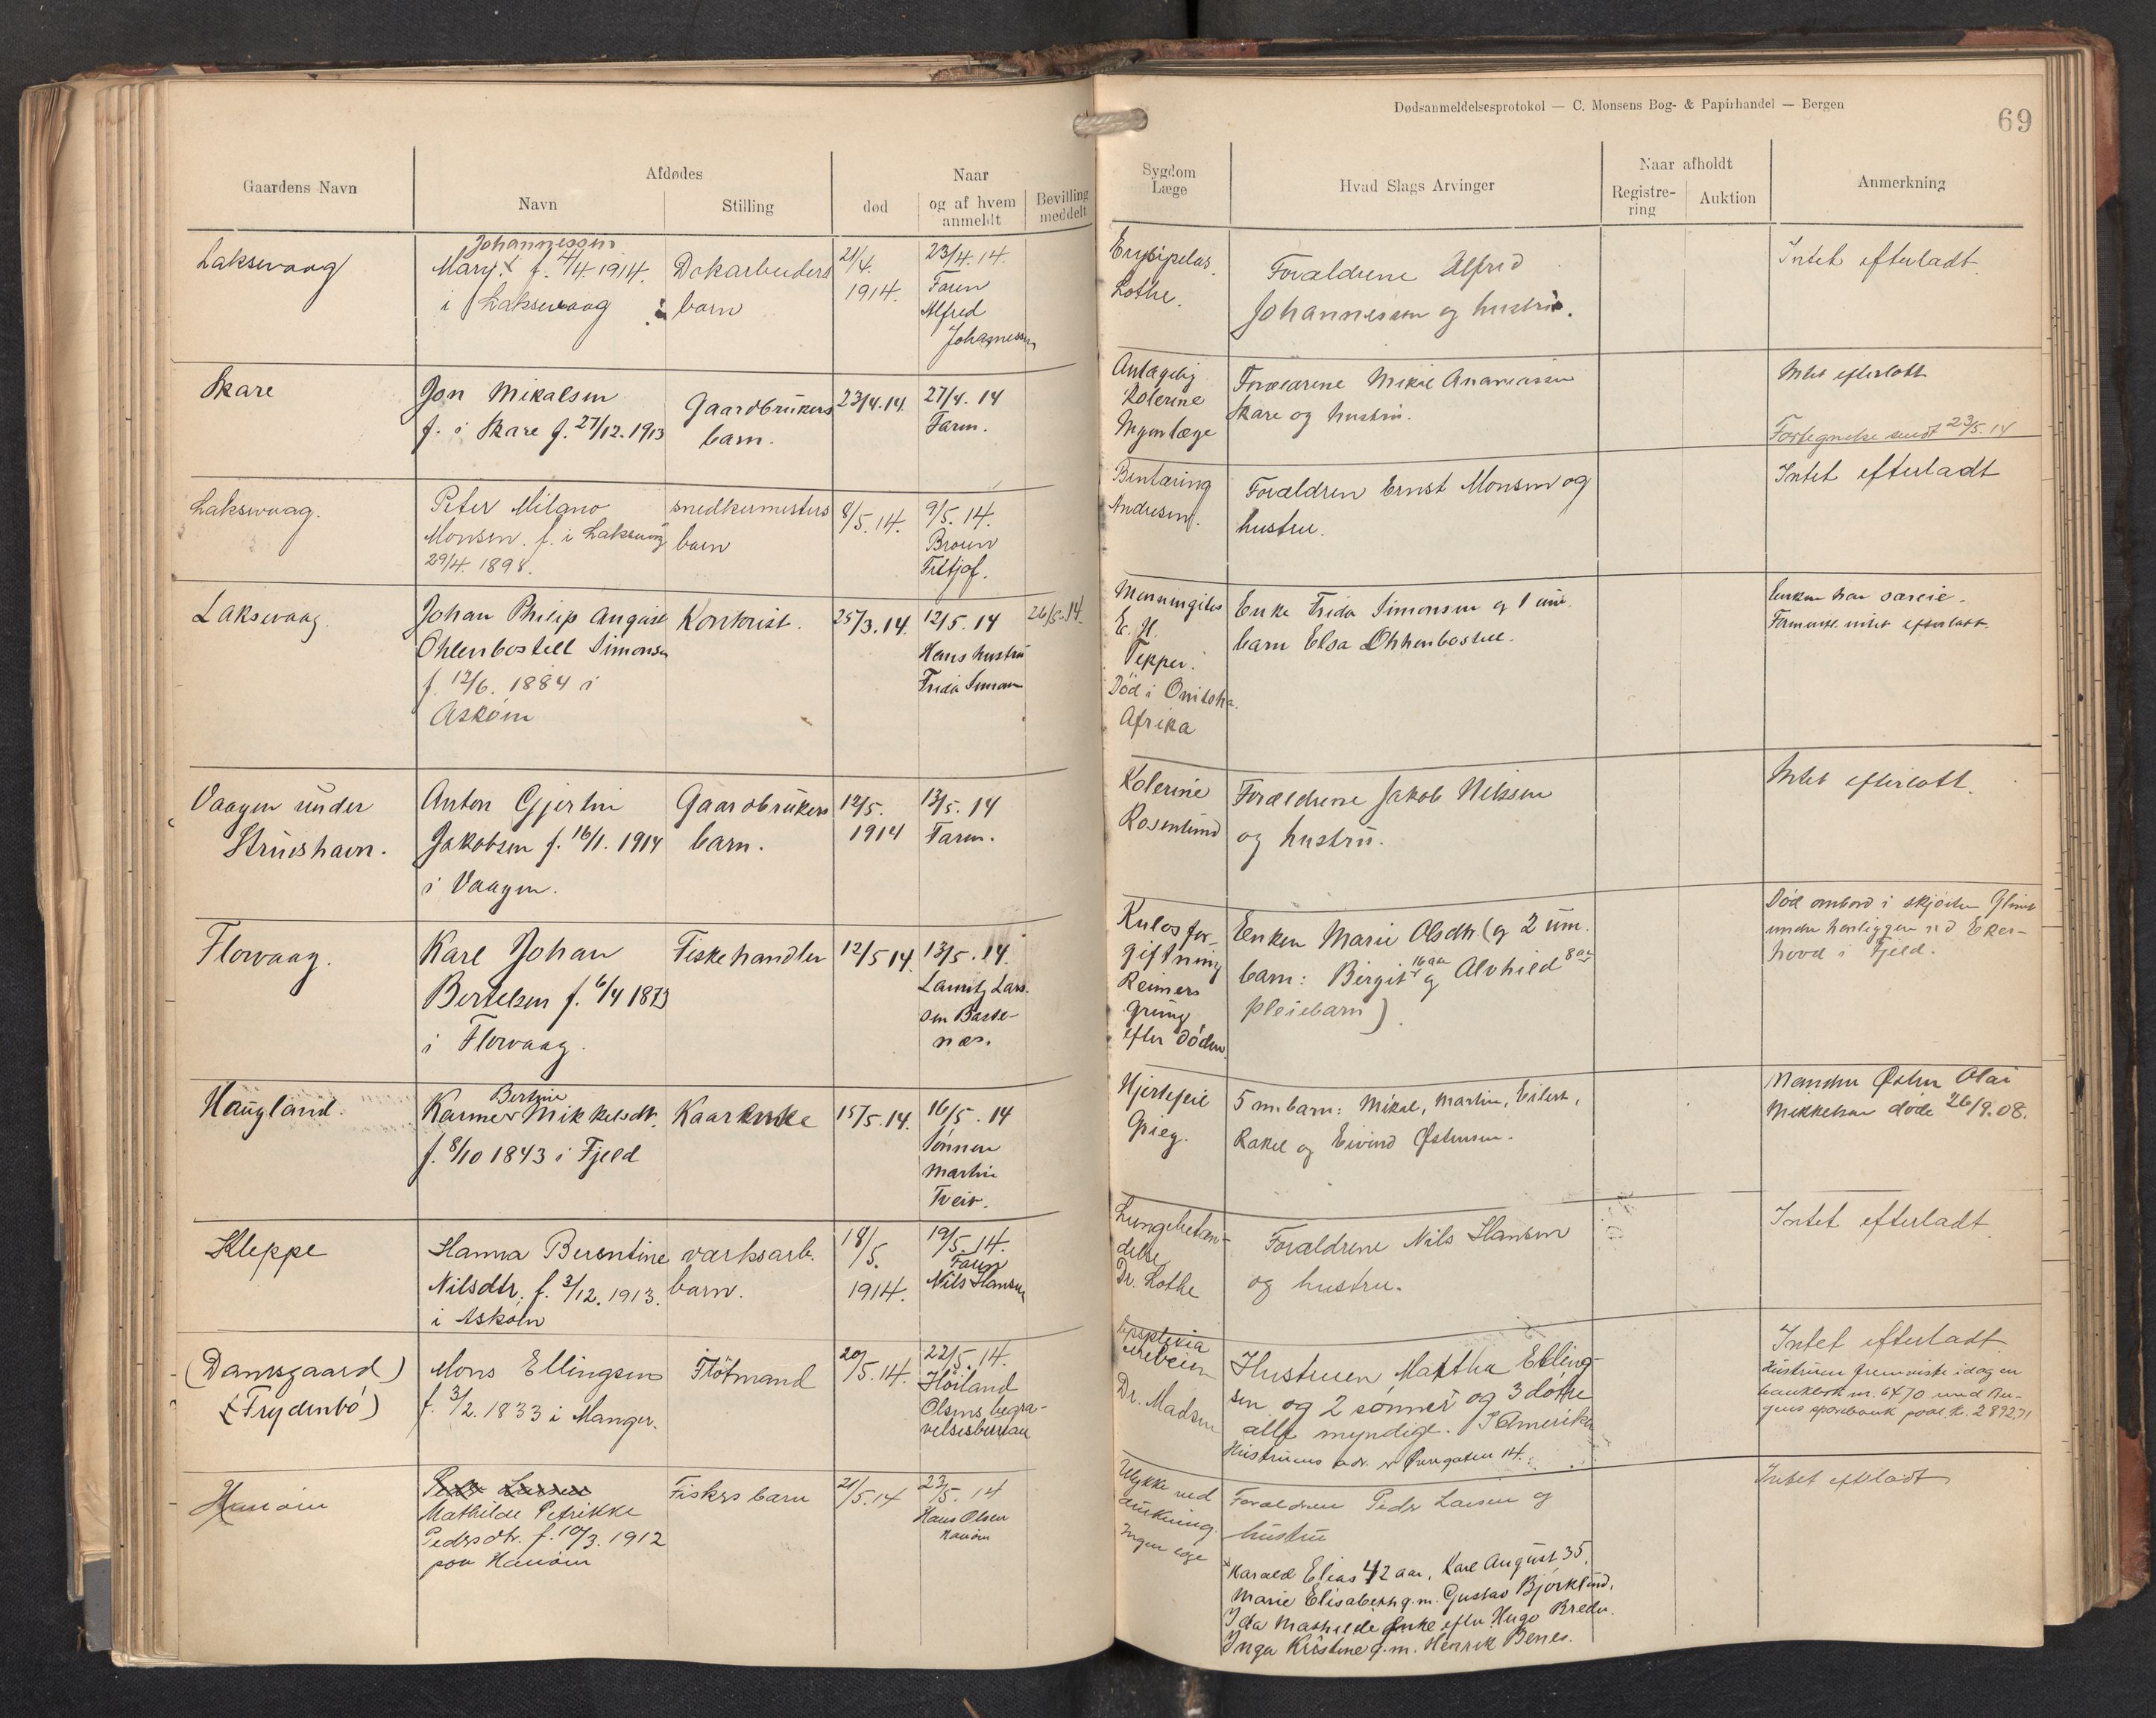 Dødsanmeldelsesprotokol — C. Monsens Bog- & Papirhandel — Bergen
69
Gaardens Navn
Afdødes
Navn
Stilling
død
Naar
og af hvem
anmeldt
Bevilling
meddelt
Sygdom
Læge
Hvad Slags Arvinger
Naar afholdt
Registre-
ring
Auktion
Anmerkning
Laksevaag
Johannessen
Mary. f. 4/4 1914.
i Laksevaag
Dokarbeiders
barn
21/4.
1914.
23/4. 14.
Faren
Alfred
Johannessen
Erysipelas.
Lothe.
Forældrene Alfred
Johannessen og hustru.
Intet efterladt.
Skare
Jon Mikalsen
f. i Skare f. 27/12. 1913
Gaardbrukers
barn.
23/4. 14.
27/4. 14
Faren.
Antagelig
Kolerine
Ingen læge
Forældrene Mikal Ananiassen
Skare og hustru.
Intet efterladt
Fortegnelse sendt 23/5. 14
Laksevaag.
Peter Milano
Monsen. f. i Laksevåg
29/4. 1898.
snedkermesters
barn
8/5. 14.
9/5. 14.
Broren
Fritjof.
Bentæring
Andresen.
Forældren Ernst Monsen og
hustru.
Intet efterladt
Laksevaag.
Johan Philip August
Ohlenbostell Simonsen
f. 12/6. 1884 i
Askøen
Kontorist.
25/3. 14.
12/5. 14
Hans hustru
Frida Simonsen
26/5. 14.
Menningites
E. H.
Tepper.
Død i Onitsha.
Afrika
Enke Frida Simonsen og 1 um.
barn Elsa Ohlenbostell.
Enken har særeie.
Forøvrigt intet efterladt.
Vaagen under
Struishavn.
Anton Gjertin
Jakobsen f. 16/1. 1914
i Vaagen.
Gaardbrukers
barn.
12/5.
1914
13/5. 14
Faren.
Kolerine
Rosenlund
Forældrene Jakob Nilssen
og hustru.
Intet efterladt.
Florvaag.
Karl Johan
Bertelsen f. 6/4 1873
i Florvaag.
Fiskehandler
12/5 14.
13/5. 14.
Lauritz Lars-
sen Baste-
næs.
Kulosfor-
giftning
Reimers
Grung
efter døden.
Enken Marie Olsdtr (og 2 um.
barn: Birgit 16 aar og Alvhild 8 aar
pleiebarn).
Død ombord i skjøiten Glimt
under henliggen ved Eker-
hovd i Fjeld.
Haugland.
Bertine
Karine Mikkelsdt.
f. 8/10 1843 i Fjeld
Kaarenke
15/5. 14.
16/5. 14
Sønnen
Martin
Tveit.
Hjertefeil
Grieg.
5 m. barn: Mikal, Martin, Eilert,
Rakel og Eivind Østensen.
Manden Østen Olai
Mikkelsen døde 26/9. 08.
Kleppe
Hanna Berentine
Nilsdtr. f. 3/12. 1913.
i Askøen
værksarb.
barn.
18/5.
1914.
19/5. 14.
Faren
Nils Hansen
Lungebetæn-
delse
Dr. Lothe
Forældrene Nils Hansen
og hustru.
Intet efterladt.
(Damsgaard)
(Frydenbø)
Mons Ellingsen
f. 3/2. 1833 i Manger.
Fløtmand
20/5. 14.
22/5. 14.
Høiland
Olsens begra-
velsesbureau
Apoplexia
Dr. Madsen
Hustruen Martha Elling-
sen og 2 sønner og 3 døtre
alle myndige. I Amerika
Hustruens adr. er Øvregaten 14.
Intet efterladt.
Hustruen fremviste idag en
bankbok nr. 6470 med Ber-
gens sparebank paal. kr. 2892,71
Hanøen
Peder Larsen
Mathilde Petrikke
Pedersdtr. f. 10/3. 1912
paa Hanøen
Fiskers barn
21/5. 14
23/5. 14
Hans Olsen
Hanøen
Ulykke ved
drukning.
Ingen læge
Forældrene Peder Larsen og
hustru
Intet efterladt
Harald Elias 42 aar, Karl August 35,
Marie Elisabeth g. m. Gustav Bjørklund,
Ida Mathilde Enke efter Hugo Breder.
Inga Kristine g. m. Henrik Benes.